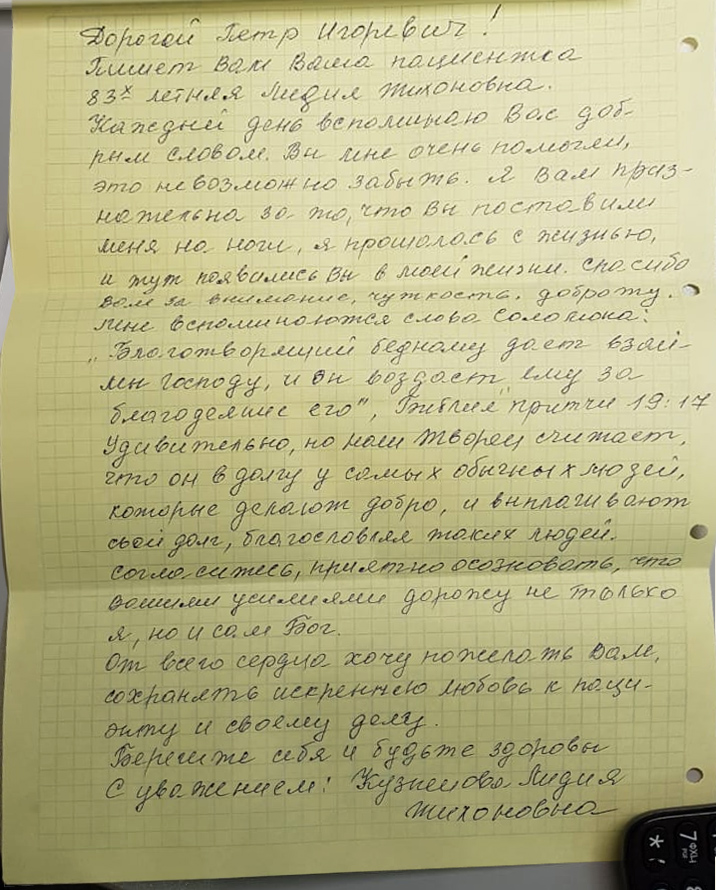 Дорогой Петр Игоревич!
Пишет Вам Ваша пациентка
83х летняя Лидия Тихоновна.
Каждый день вспоминаю Вас доб-
рым словом. Вы мне очень помогли,
это невозможно забыть. Я Вам приз-
нательна за то, что Вы поставили
меня на ноги, я прощалась с жизнью,
и тут появились Вы в моей жизни. Спасибо
Вам за внимание, чуткость, доброту.
Мне вспоминаются слова Соломона:
„Благотворящий бедному дает взай-
мы Господу, и Он воздаст ему за
благодеяние его", „Библия" притчи 19:17
Удивительно, но наш Творец считает,
что он в долгу у самых обычных людей,
которые делают добро, и выплачивают
свой долг, благословляя таких людей.
Согласитесь, приятно осознавать, что
вашими усилиями дорожу не только
я, но и сам Бог.
От всего сердца хочу пожелать Вам,
сохранять искреннюю любовь к паци-
энту и своему делу.
Берегите себя и будьте здоровы
С уважением: Кузнецова Лидия
Тихоновна
7 ФХЦЧ
* !